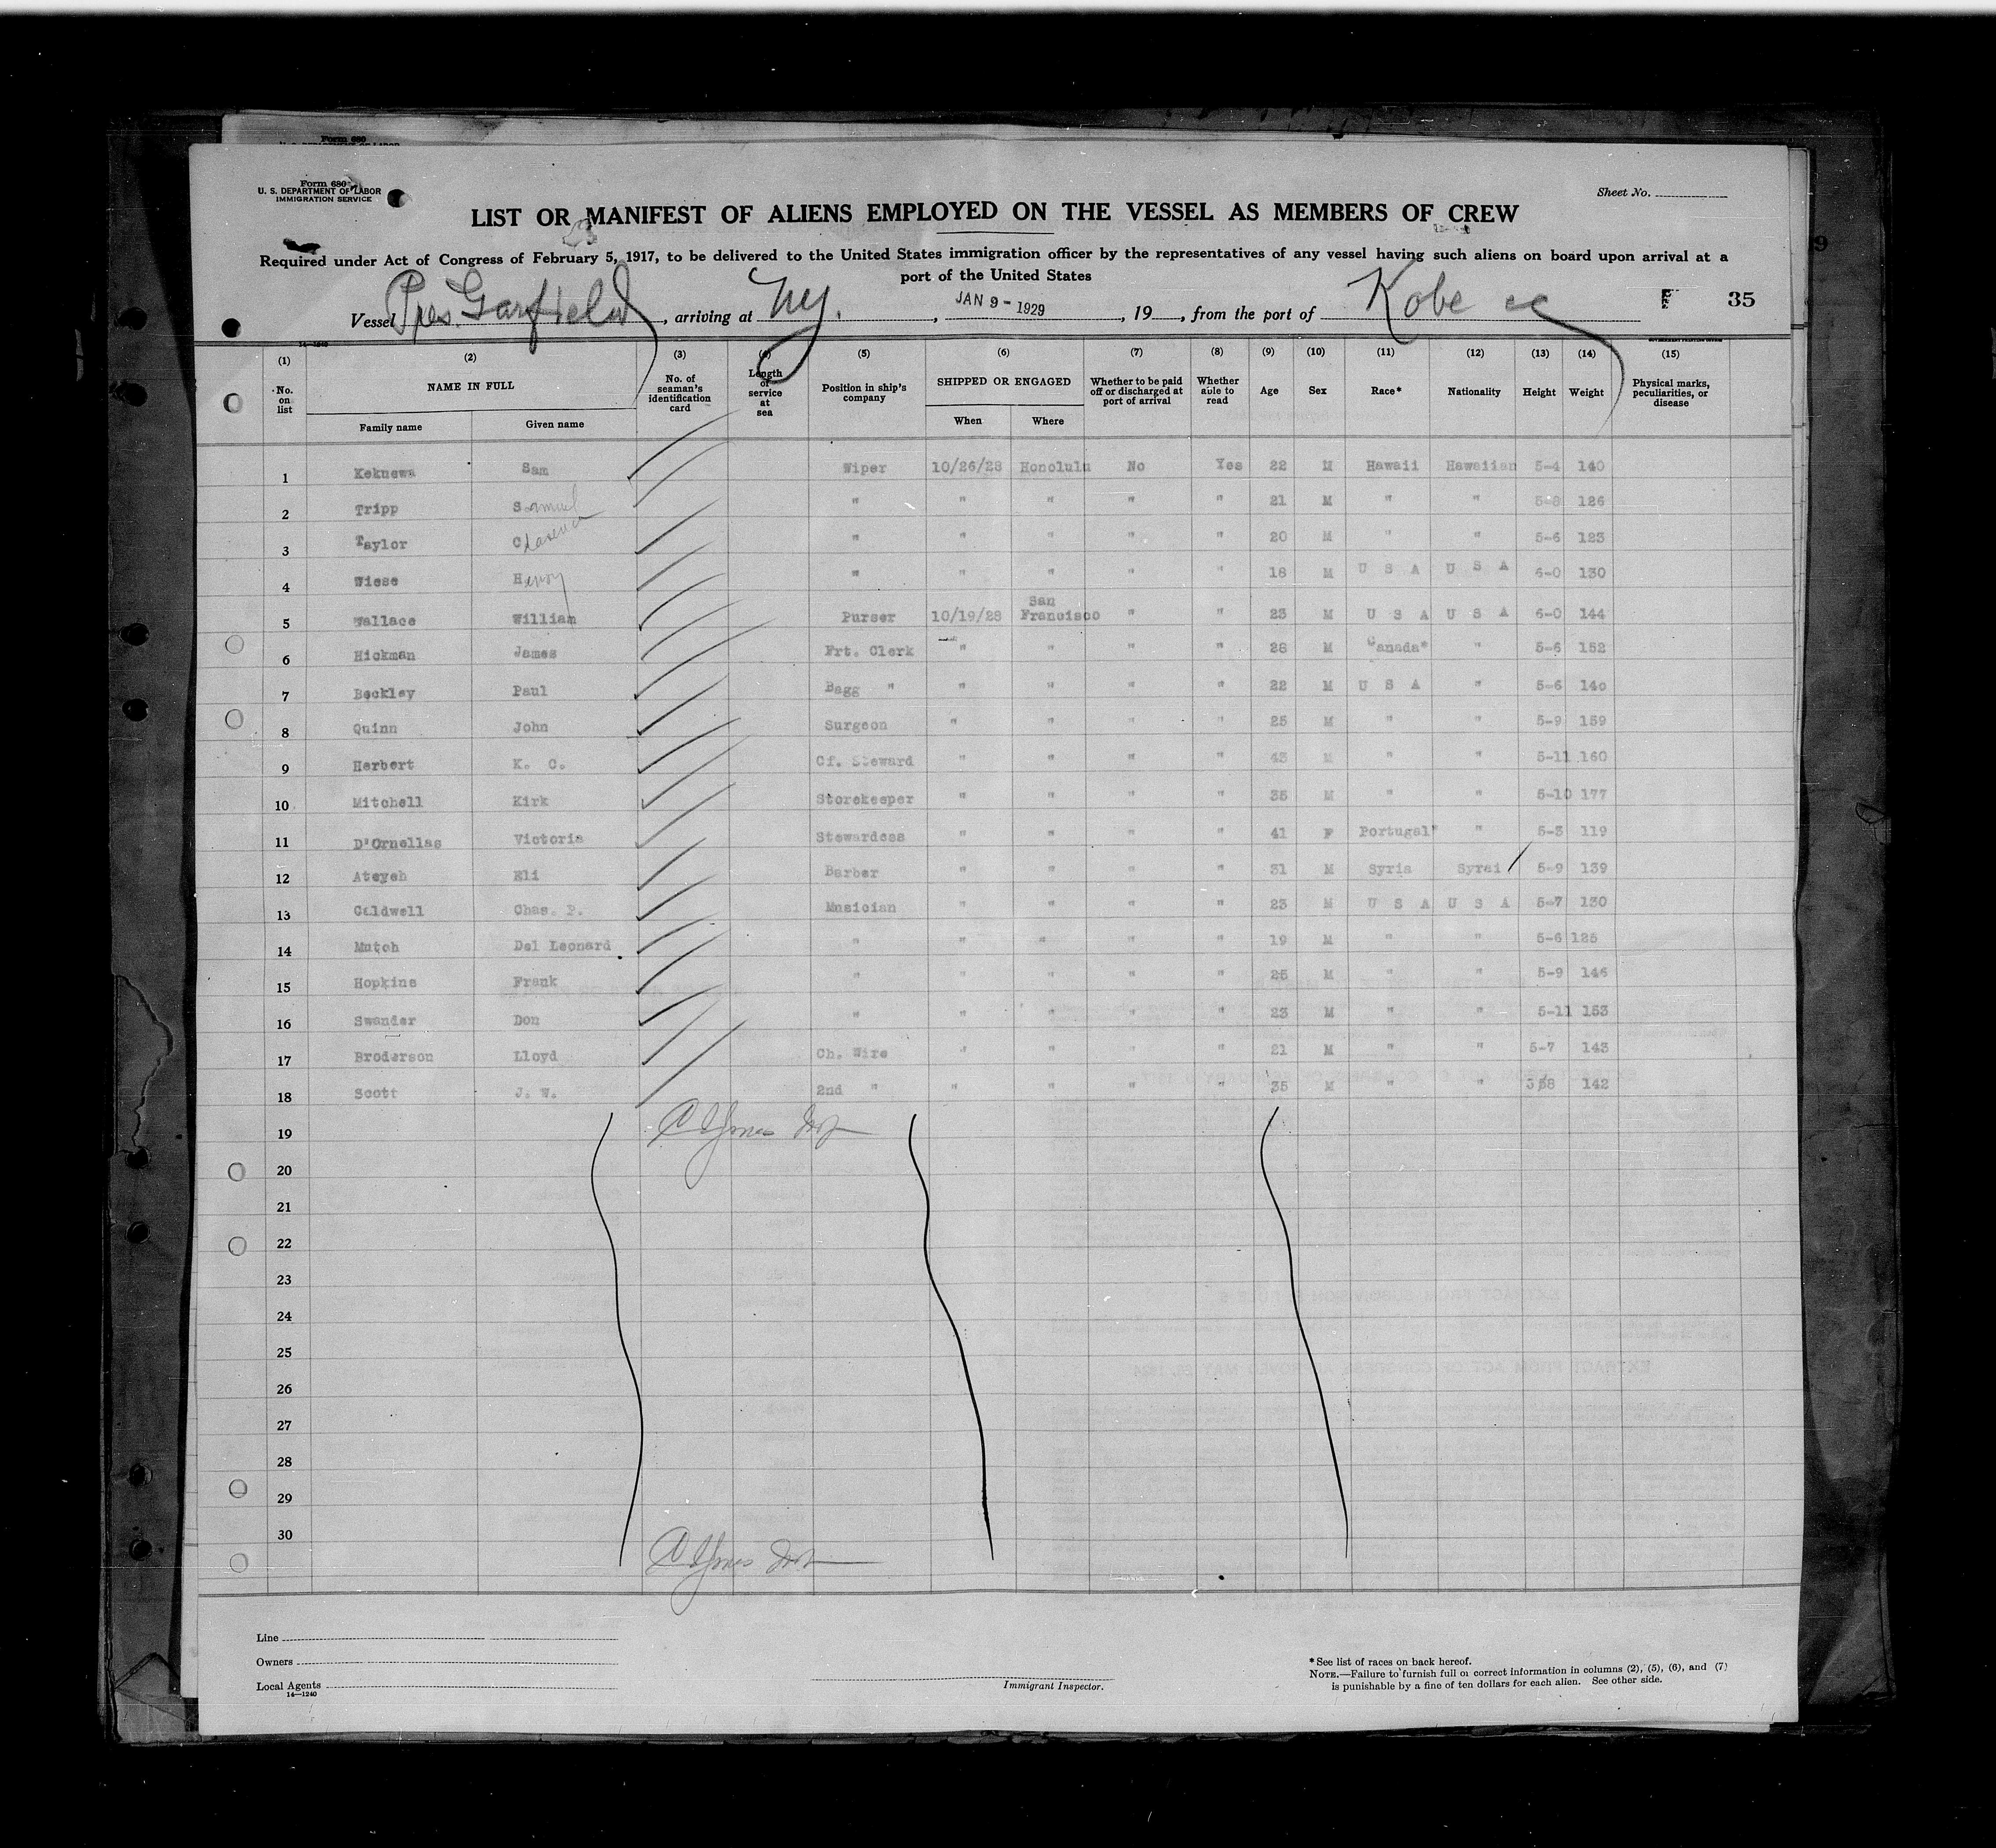 Form 680
U. S. DEPARTMENT OF LABOR
IMMIGRATION SERVICE
Sheet No.
LIST OR MANIFEST OF ALIENS EMPLOYED ON THE VESSEL AS MEMBERS OF CREW
Required under Act of Congress of February 5, 1917, to be delivered to the United States immigration officer by the representatives of any vessel having such aliens on board upon arrival at a
port of the United States
Vessel Pres. Garfield, arriving at NY., JAN 9 - 1929, 19__, from the port of Kobe 35
14—1240
(1) (2) (3) (4) (5) (6) (7) (8) (9) (10) (11) (12) (13) (14) (15)
No. on list NAME IN FULL No. of seaman's identification card Length of service at sea Position in ship's company SHIPPED OR ENGAGED Whether to be paid off or discharged at port of arrival Whether able to read Age Sex Race* Nationality Height Weight Physical marks, peculiarities, or disease
Family name Given name When Where
1 Keknewa Sam Wiper 10/26/28 Honolulu No Yes 22 M Hawaii Hawaiian 5-4 140
2 Tripp Samuel " " " " " 21 M " " 5-8 126
3 Taylor Clarence " " " " " 20 M " " 5-6 123
4 Wiese Henry " " " " " 18 M U S A U S A 6-0 130
5 Wallace William Purser 10/19/28 San Francisco " " 23 M U S A U S A 6-0 144
6 Hickman James Frt. Clerk " " " " 28 M Canada* " 5-6 152
7 Beckley Paul Bagg " " " " " 22 M U S A " 5-6 140
8 Quinn John Surgeon " " " " 25 M " " 5-9 159
9 Herbert K. C. Cf. Steward " " " " 43 M " " 5-11 160
10 Mitchell Kirk Storekeeper " " " " 35 M " " 5-10 177
11 D'Ornellas Victoria Stewardess " " " " 41 F Portugal* " 5-3 119
12 Ateyeh Eli Barber " " " " 31 M Syria Syrai 5-9 139
13 Caldwell Chas. P. Musician " " " " 23 M U S A U S A 5-7 130
14 Mutch Del Leonard " " " " " 19 M " " 5-6 125
15 Hopkins Frank " " " " " 25 M " " 5-9 146
16 Swander Don " " " " " 23 M " " 5-11 153
17 Broderson Lloyd Ch. Wire " " " " 21 M " " 5-7 143
18 Scott J. W. 2nd " " " " " 35 M " " 58 142
19
20
21
22
23
24
25
26
27
28
29
30
Line
Owners
Local Agents
14—1240
Immigrant Inspector.
* See list of races on back hereof.
NOTE.—Failure to furnish full or correct information in columns (2), (5), (6), and (7)
is punishable by a fine of ten dollars for each alien. See other side.